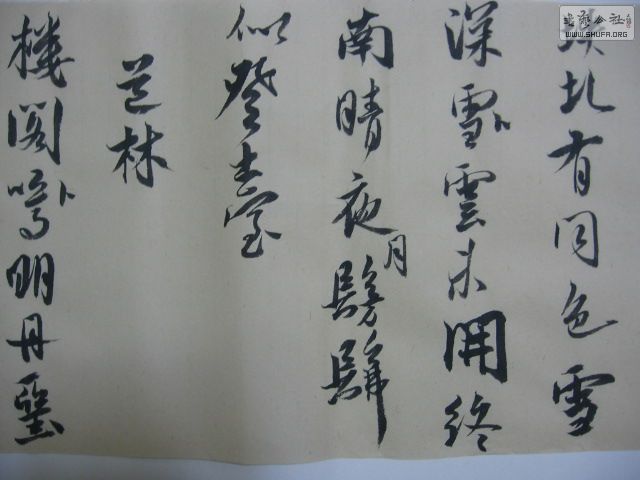 圠有同色雪
深雪卜雲未開終
南晴夜月髣髴
似登臺
道林
樓閣鳴卜明丹堊
书法公社
WWW.SHUFA.ORG